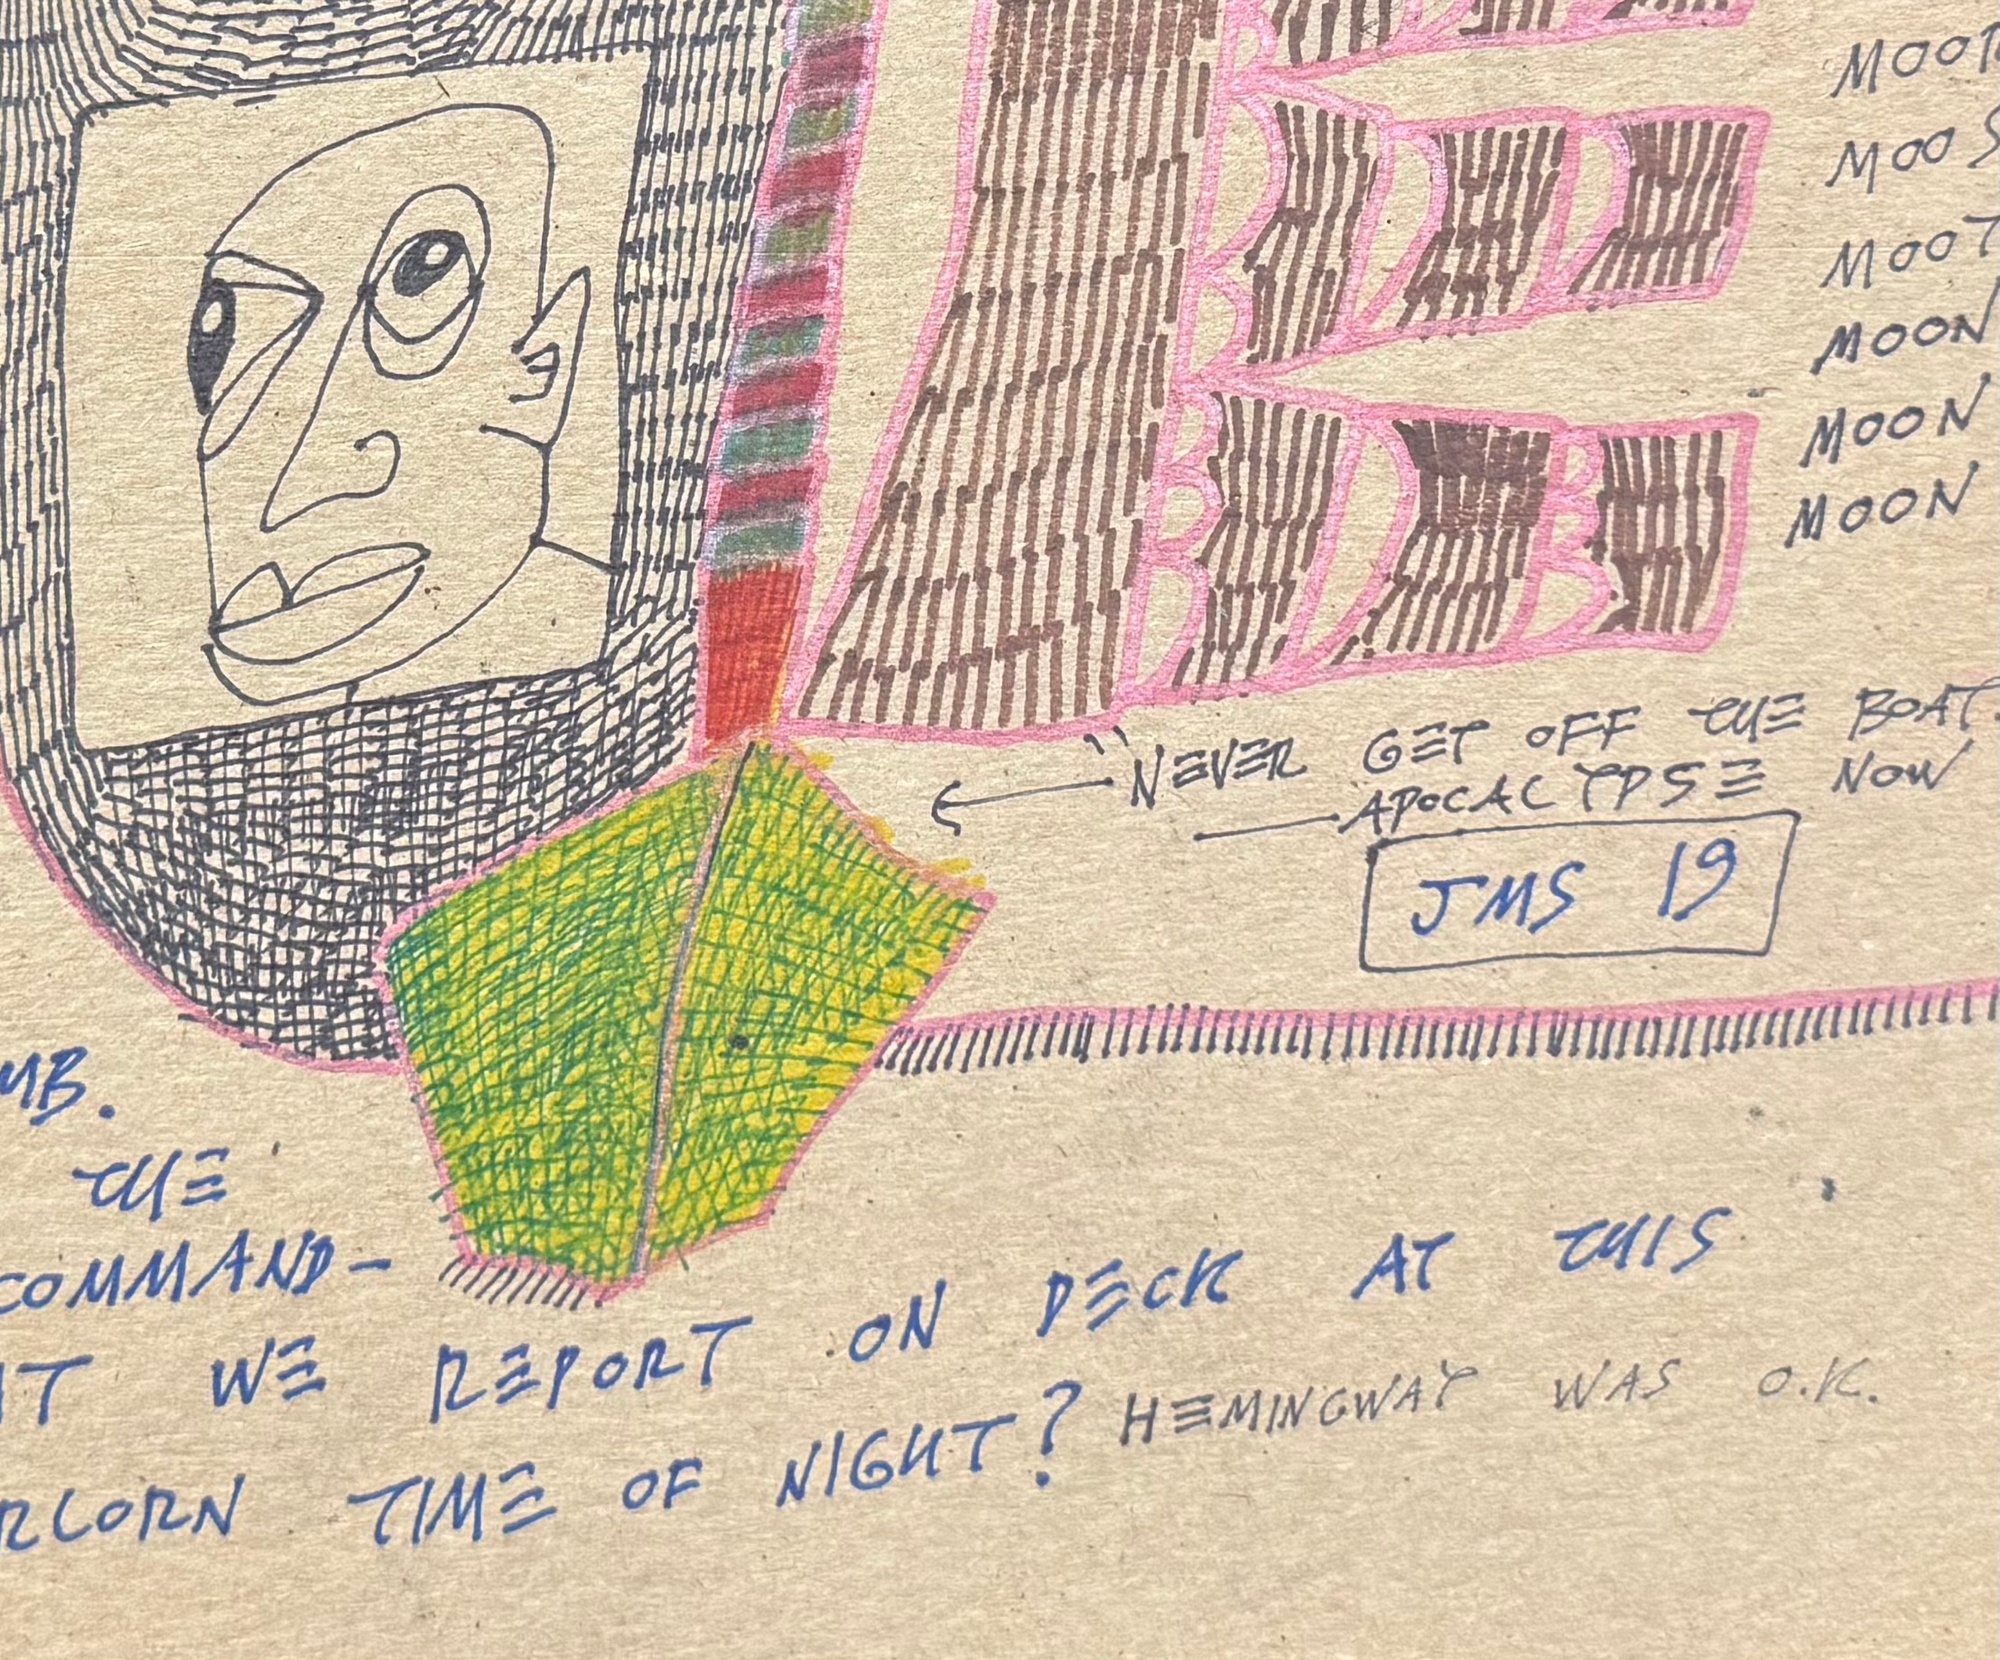 MOO
MOOS
MOOT
MOON
MOON
MOON
"NEVER GET OFF THE BOAT.
APOCALYPSE NOW
JMS 19
MB.
THE
COMMAND-
WE REPORT ON DECK AT THIS
RCORN TIME OF NIGHT? HEMINGWAY WAS O.K.